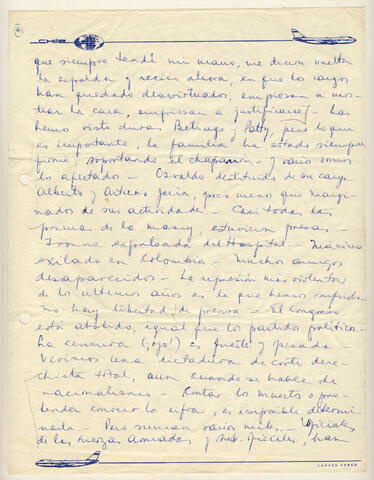 que siempre tendí mi mano, me dieron vuelta
la espalda y recién ahora, en que los cargos
han quedado desvirtuados, empiesan a mos-
trar la cara, empiesan a justificarse. - Las
hemos visto duras Betings y Patty, pero lo que
es importante, la familia ha estado siempre
firme, soportando el chaparrón - y varios somos
los afectados - Osvaldo destituido de su cargo
Alberto y Arturo Jeria, poco menos que margi-
nados de sus actividades. - Casi todas las
primas de la mamy, estuvieron presas. -
Ivonne expulsada del Hospital - Maximo
exilado en Kolombia - Muchos amigos
desaparecidos - La represión más violenta
de los últimos años es la que hemos sufrido
no hay libertad de prensa - El Congreso
está abolido, igual que los partidos políticos. -
La censura (¡ojo!) es fuerte y pesada
Vivimos una dictadura de corte dere-
chista total, aun cuando se hable de
nacionalismo - Contar los muertos o pre-
tender conocer la cifra, es imposible determi-
narla - Pero suman varios miles. - Oficiales
de las Fuerzas Armadas y sub-oficiales, han
CORREO AEREO